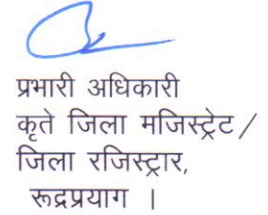 प्रभारी अधिकारी
कृते जिला मजिस्ट्रेट /
जिला रजिस्ट्रार,
रूद्रप्रयाग ।